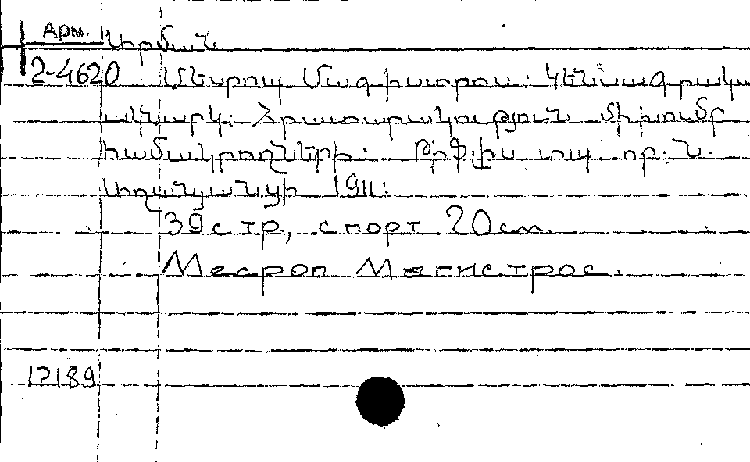 Арм. Կիրման
2-4620 Մեսրոպ Մագիստրոս. Կենսագրակա
ակնարկ. Հրատարակություն միխումբ
համակրողների. Թիֆլիս տպ. որ. Ն.
Աղանյանցի 1911.
39 стр, с порт 20 см.
Месроп Магистрос.
17189